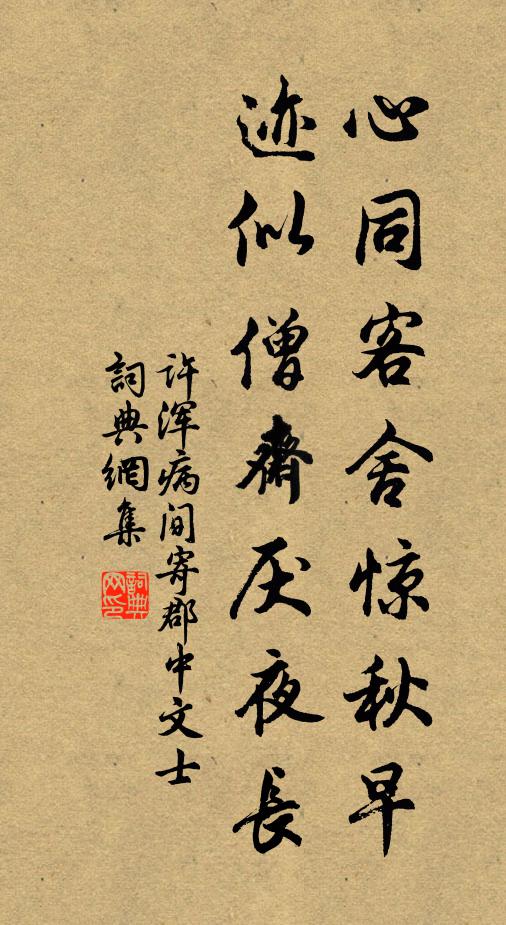 心同客舍惊秋早
迹似僧斋厌夜長
许浑病间寄郡中文士
詞典網集
詞典网印